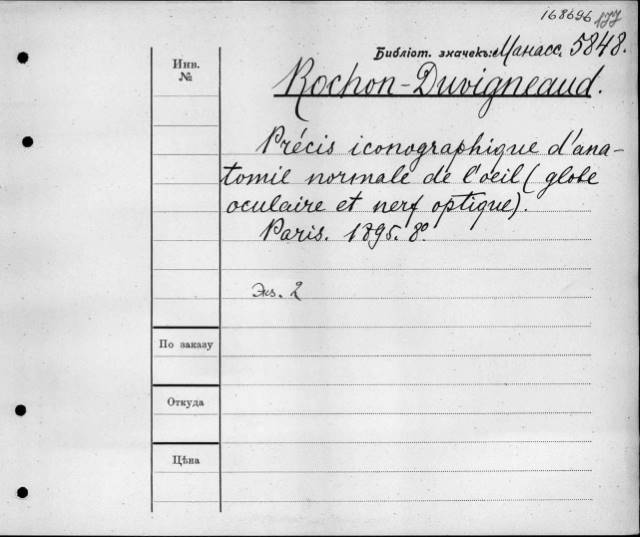 168696 177
Библіот. значекъ: Манасс. 5848.
Инв.
№
Rochon-Duvigneaud.
Précis iconographique d'ana-
tomie normale de l'oeil (globe
oculaire et nerf optique).
Paris. 1895. 8º.
Экз. 2
По заказу
Откуда
Цѣна